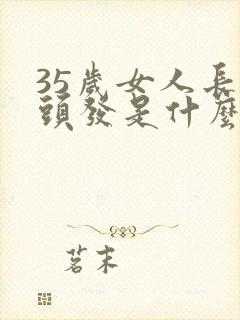 35歲女人長
頭發是什麼
茗末